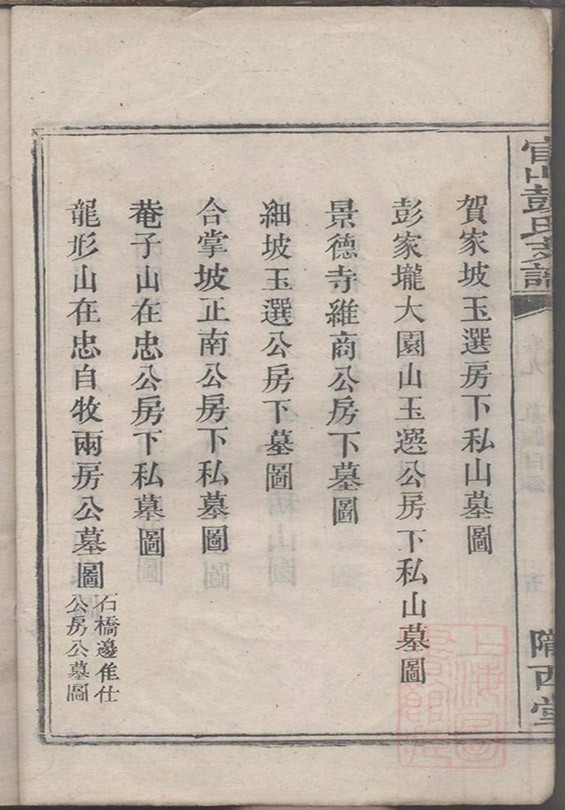 官山彭氏支譜
隋西堂
賀家坡玉選房下私山墓圖
彭家壠大園山玉選公房下私山墓圖
景德寺維商公房下墓圖
細坡玉選公房下墓圖
合掌坡正南公房下私墓圖
菴子山在忠公房下私墓圖
龍形山在忠自牧兩房公墓圖
石橋邊隹仕
公房公墓圖